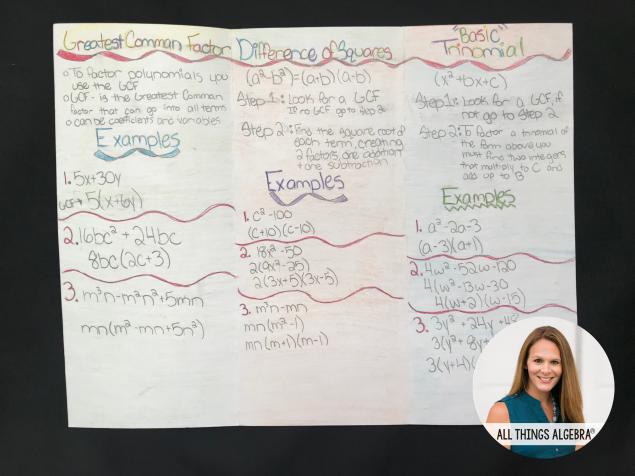 Greatest Comman Factor
o To factor polynomials you
use the GCF
o GCF - is the Greatest Comman
factor that can go into all terms
o can be coefficients and variables
Examples
1. 5x+30y
GCF→ 5(x+6y)
2. 16bc² + 24bc
8bc(2c+3)
3. m³n-m²n²+5mn
mn(m²-mn+5n²)
Difference of Squares
(a²-b²)=(a+b)(a-b)
Step 1: Look for a GCF
If no GCF go to Step 2
Step 2: Find the square root of
each term, creating
2 factors, one addition
+ one subtraction
Examples
1. c²-100
(c+10)(c-10)
2. 18x²-50
2(9x²-25)
2(3x+5)(3x-5)
3. m³n-mn
mn(m²-1)
mn(m+1)(m-1)
"Basic"
Trinomial
(x²+bx+c)
Step 1: Look for a GCF, if
not go to Step 2
Step 2: To factor a trinomial of
the form above you
must find two integers
that multiply to C and
add up to B
Examples
1. a²-2a-3
(a-3)(a+1)
2. 4w²-52w-120
4(w²-13w-30
4(w+2)(w-15)
3. 3y² + 24y +
3(y²+8y+
3(y+4)(
ALL THINGS ALGEBRA®